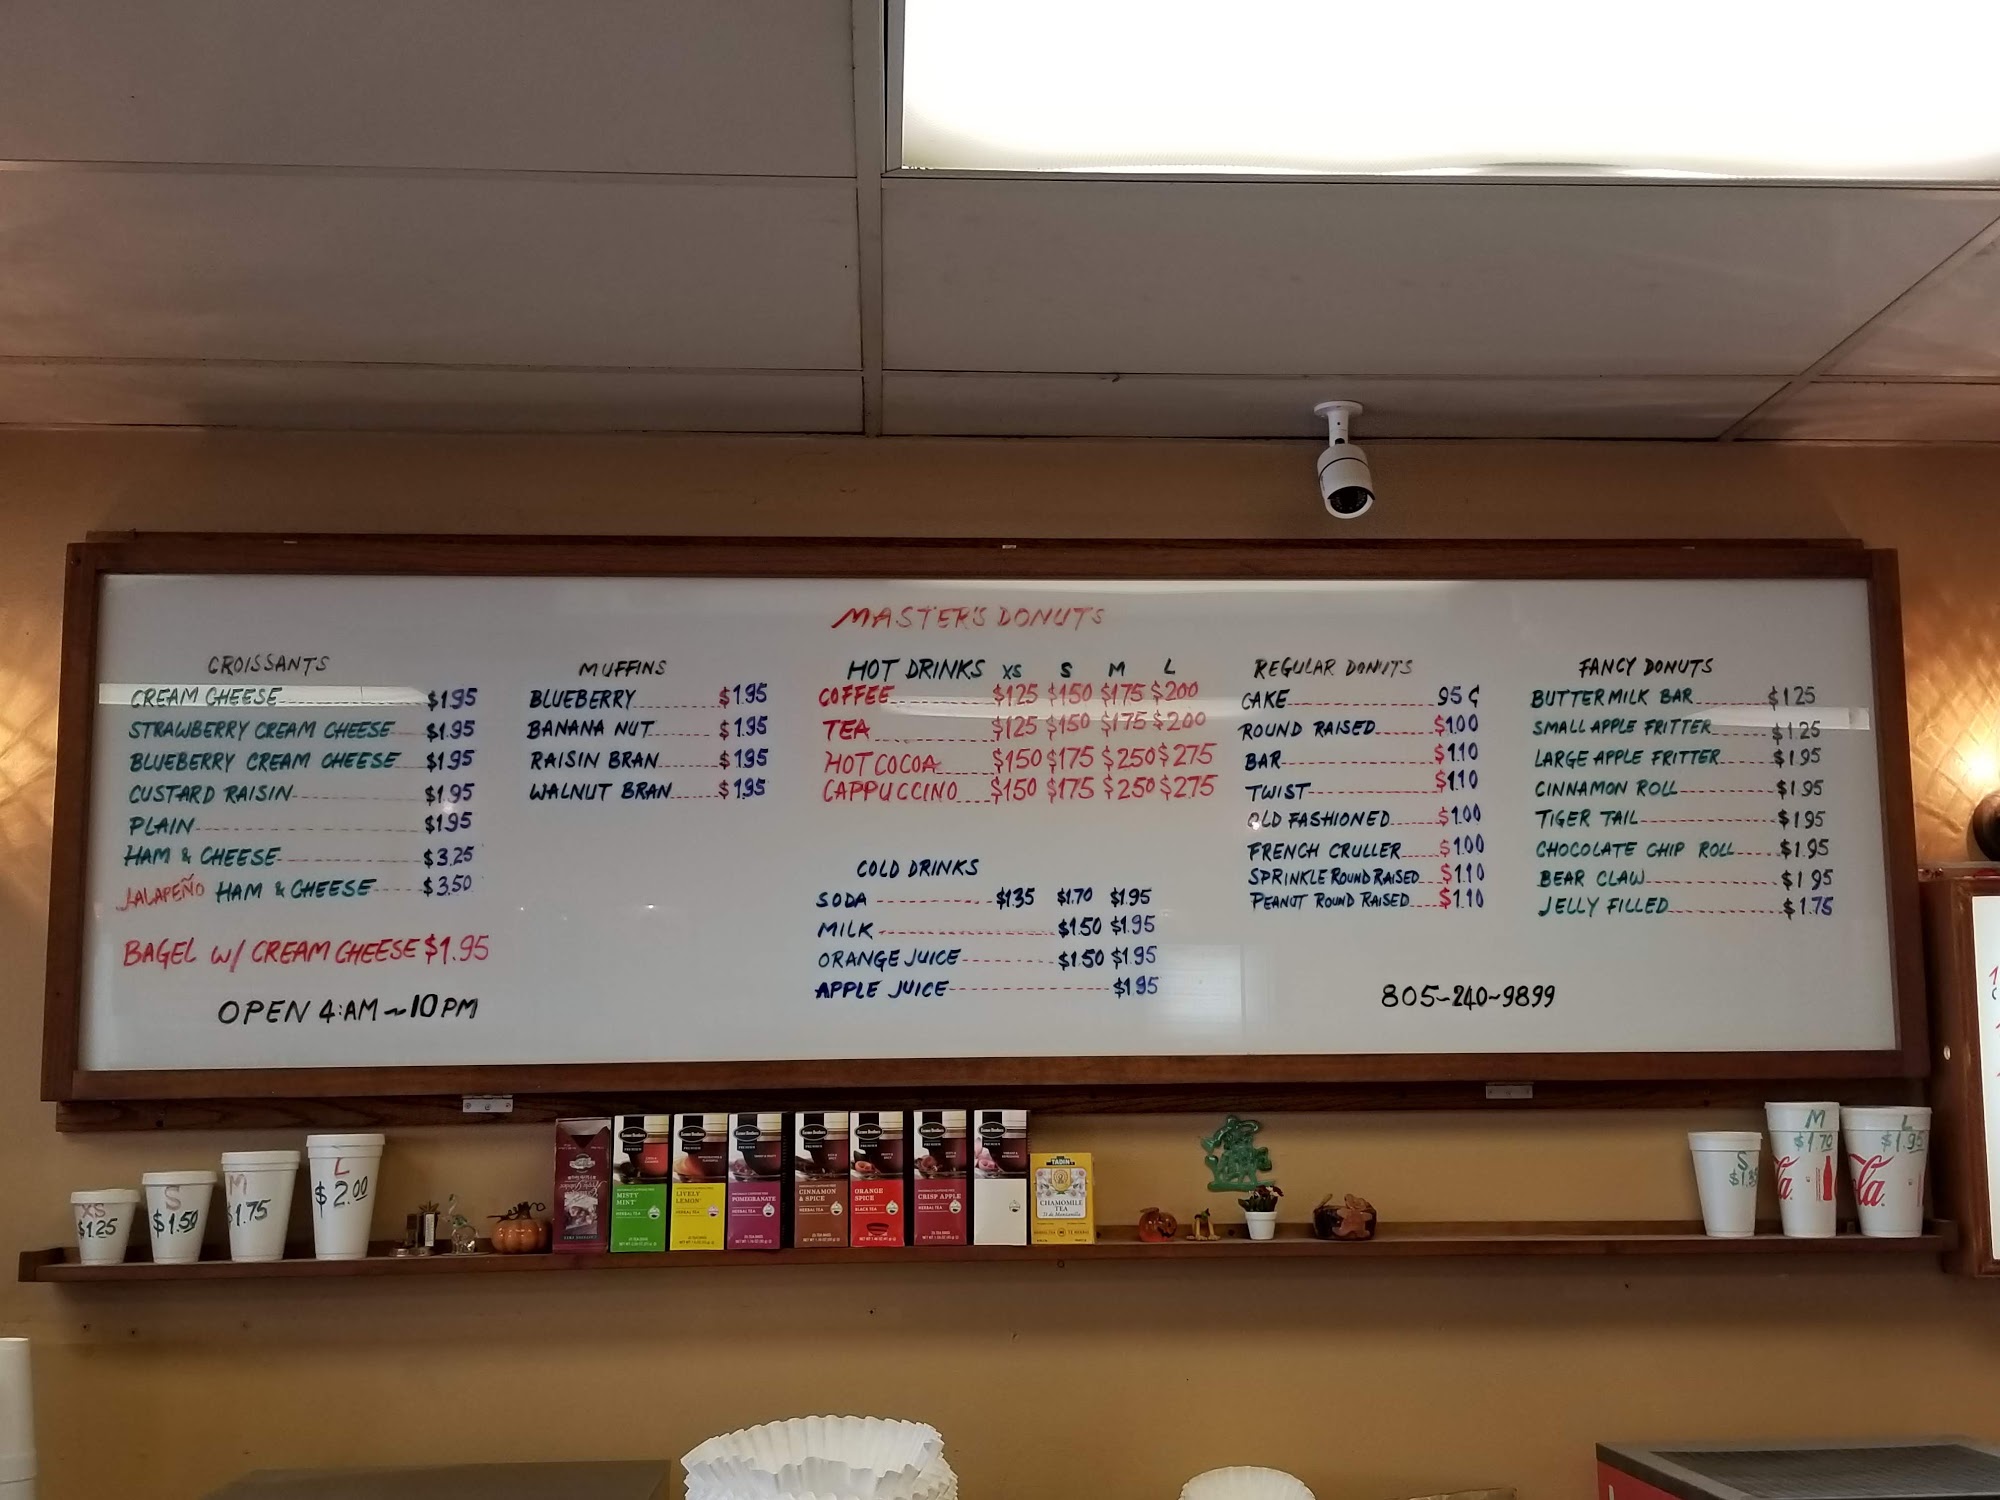 MASTER'S DONUTS
CROISSANTS
CREAM CHEESE $1.95
STRAWBERRY CREAM CHEESE $1.95
BLUEBERRY CREAM CHEESE $1.95
CUSTARD RAISIN $1.95
PLAIN $1.95
HAM & CHEESE $3.25
JALAPEÑO HAM & CHEESE $3.50
BAGEL W/ CREAM CHEESE $1.95
OPEN 4:AM ~ 10 PM
MUFFINS
BLUEBERRY $1.95
BANANA NUT $1.95
RAISIN BRAN $1.95
WALNUT BRAN $1.95
HOT DRINKS XS S M L
COFFEE $125 $150 $175 $200
TEA $125 $150 $175 $200
HOT COCOA $150 $175 $250 $275
CAPPUCCINO $150 $175 $250 $275
COLD DRINKS
SODA $1.35 $1.70 $1.95
MILK $1.50 $1.95
ORANGE JUICE $1.50 $1.95
APPLE JUICE $1.95
REGULAR DONUTS
CAKE 95¢
ROUND RAISED $1.00
BAR $1.10
TWIST $1.10
OLD FASHIONED $1.00
FRENCH CRULLER $1.00
SPRINKLE ROUND RAISED $1.10
PEANUT ROUND RAISED $1.10
FANCY DONUTS
BUTTERMILK BAR $1.25
SMALL APPLE FRITTER $1.25
LARGE APPLE FRITTER $1.95
CINNAMON ROLL $1.95
TIGER TAIL $1.95
CHOCOLATE CHIP ROLL $1.95
BEAR CLAW $1.95
JELLY FILLED $1.75
805-240-9899
XS
$1.25
S
$1.50
M
$1.75
L
$2.00
MISTY
MINT
HERBAL TEA
LIVELY
LEMON
HERBAL TEA
POMEGRANATE
HERBAL TEA
CINNAMON
& SPICE
HERBAL TEA
ORANGE
SPICE
BLACK TEA
CRISP APPLE
HERBAL TEA
TADIN
CHAMOMILE
TEA
Té de Manzanilla
S
$1.35
M
$1.70
L
$1.95